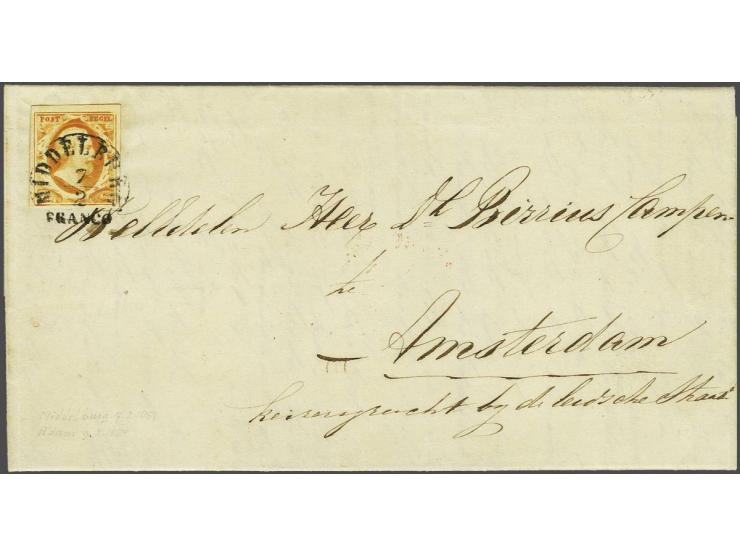 POST ZEGEL
MIDDELBURG
7
2
FRANCO
Weledelen Heer Dk Birrius Campen
te
Amsterdam
keizersgracht by de leidsche Straat
Middelburg 7.2.1857
A'dam 9.2.1857